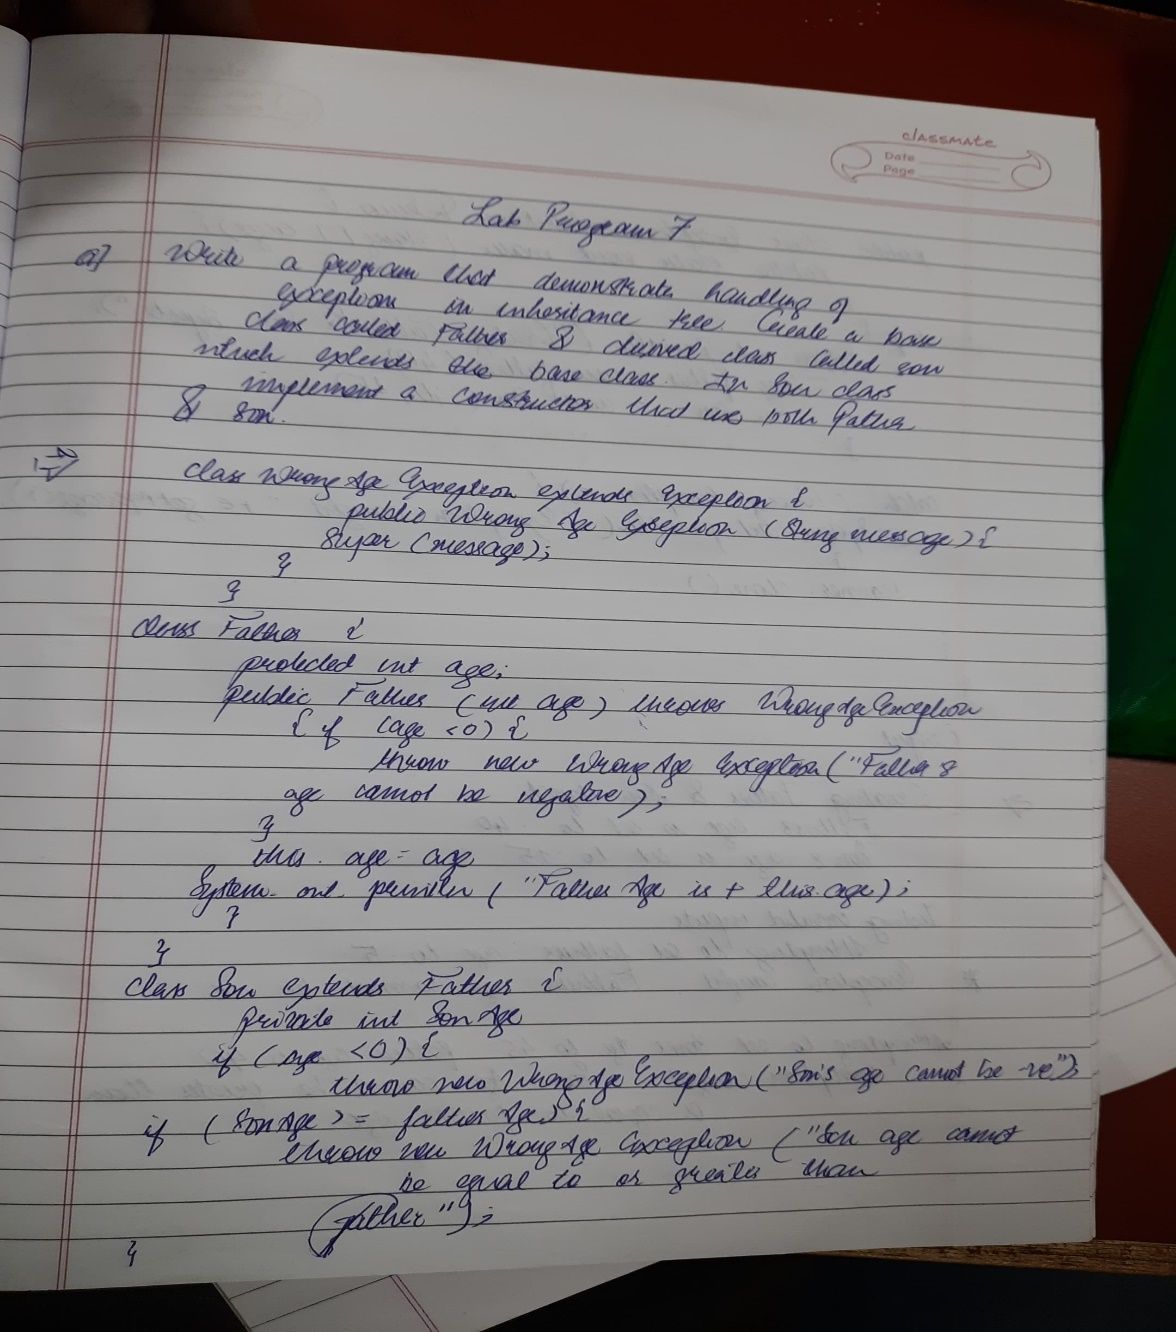 classmate
Date
Page
Lab Program 7
a] Write a program that demonstrate handling of
exception in inheritance tree. Create a base
class called Father & derived class called son
which extends the base class. In Son class
implement a constructor that uses both Father
& son.
class Wrong Age Exception extends Exception {
public Wrong Age Exception (String message) {
Super (message);
}
}
class Father {
protected int age;
public Father (int age) throws WrongAgeException
{ if (age <0) {
throw new Wrong Age Exception ("Father's
age cannot be negative);
}
this. age = age
System. out. println ( "Father Age is + this.age);
}
}
class Son extends Father {
private int Son Age
if (age <0) {
throw new Wrong Age Exception ("Son's age cannot be -ve")
if (Son Age >= father Age) {
throw new Wrong Age Exception ("Son age cannot
be equal to or greater than
father");
}